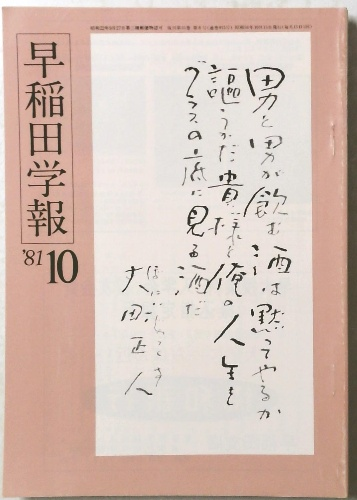 早稲田学報
'81 10
男と男が飲む酒は黙ってやるか
謳うかだ貴様と俺の人生を
グラスの底に見る酒だ
大田正人